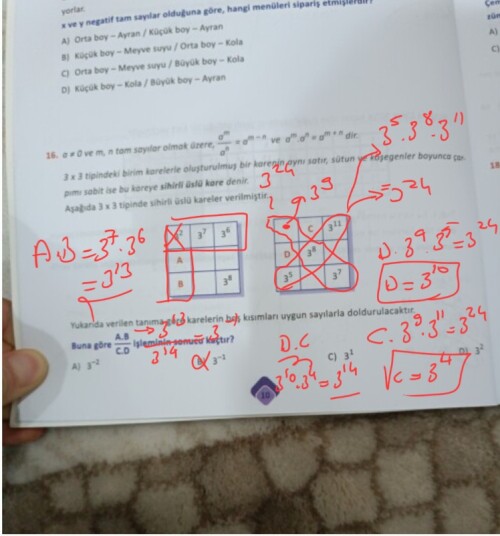 yorlar.
x ve y negatif tam sayılar olduğuna göre, hangi menüleri sipariş etmişlerdir?
A) Orta boy – Ayran / Küçük boy – Ayran
B) Küçük boy – Meyve suyu / Orta boy – Kola
C) Orta boy – Meyve suyu / Büyük boy – Kola
D) Küçük boy – Kola / Büyük boy – Ayran
A)
C)
18
16. a ≠ 0 ve m, n tam sayılar olmak üzere, aᵐ/aⁿ = aᵐ⁻ⁿ ve aᵐ.aⁿ = aᵐ⁺ⁿ dir.
3⁵.3⁸.3¹¹
3 x 3 tipindeki birim karelerle oluşturulmuş bir karenin aynı satır, sütun ve köşegenler boyunca çar-
pımı sabit ise bu kareye sihirli üslü kare denir.
3²⁴
Aşağıda 3 x 3 tipinde sihirli üslü kareler verilmiştir.
3⁹
=3²⁴
3⁷ 3⁶
A
B 3⁸
C 3¹¹
D 3⁸
3⁵ 3⁷
A.B = 3⁷.3⁶
= 3¹³
D.3⁹.3⁵ = 3²⁴
D = 3¹⁰
Yukarıda verilen tanıma göre karelerin boş kısımları uygun sayılarla doldurulacaktır.
Buna göre A.B/C.D işleminin sonucu kaçtır?
3¹³
3¹⁴
= 3⁻¹
D.C
3¹⁰.3⁴ = 3¹⁴
C.3⁹.3¹¹ = 3²⁴
C = 3⁴
A) 3⁻² B) 3⁻¹ C) 3¹ D) 3²